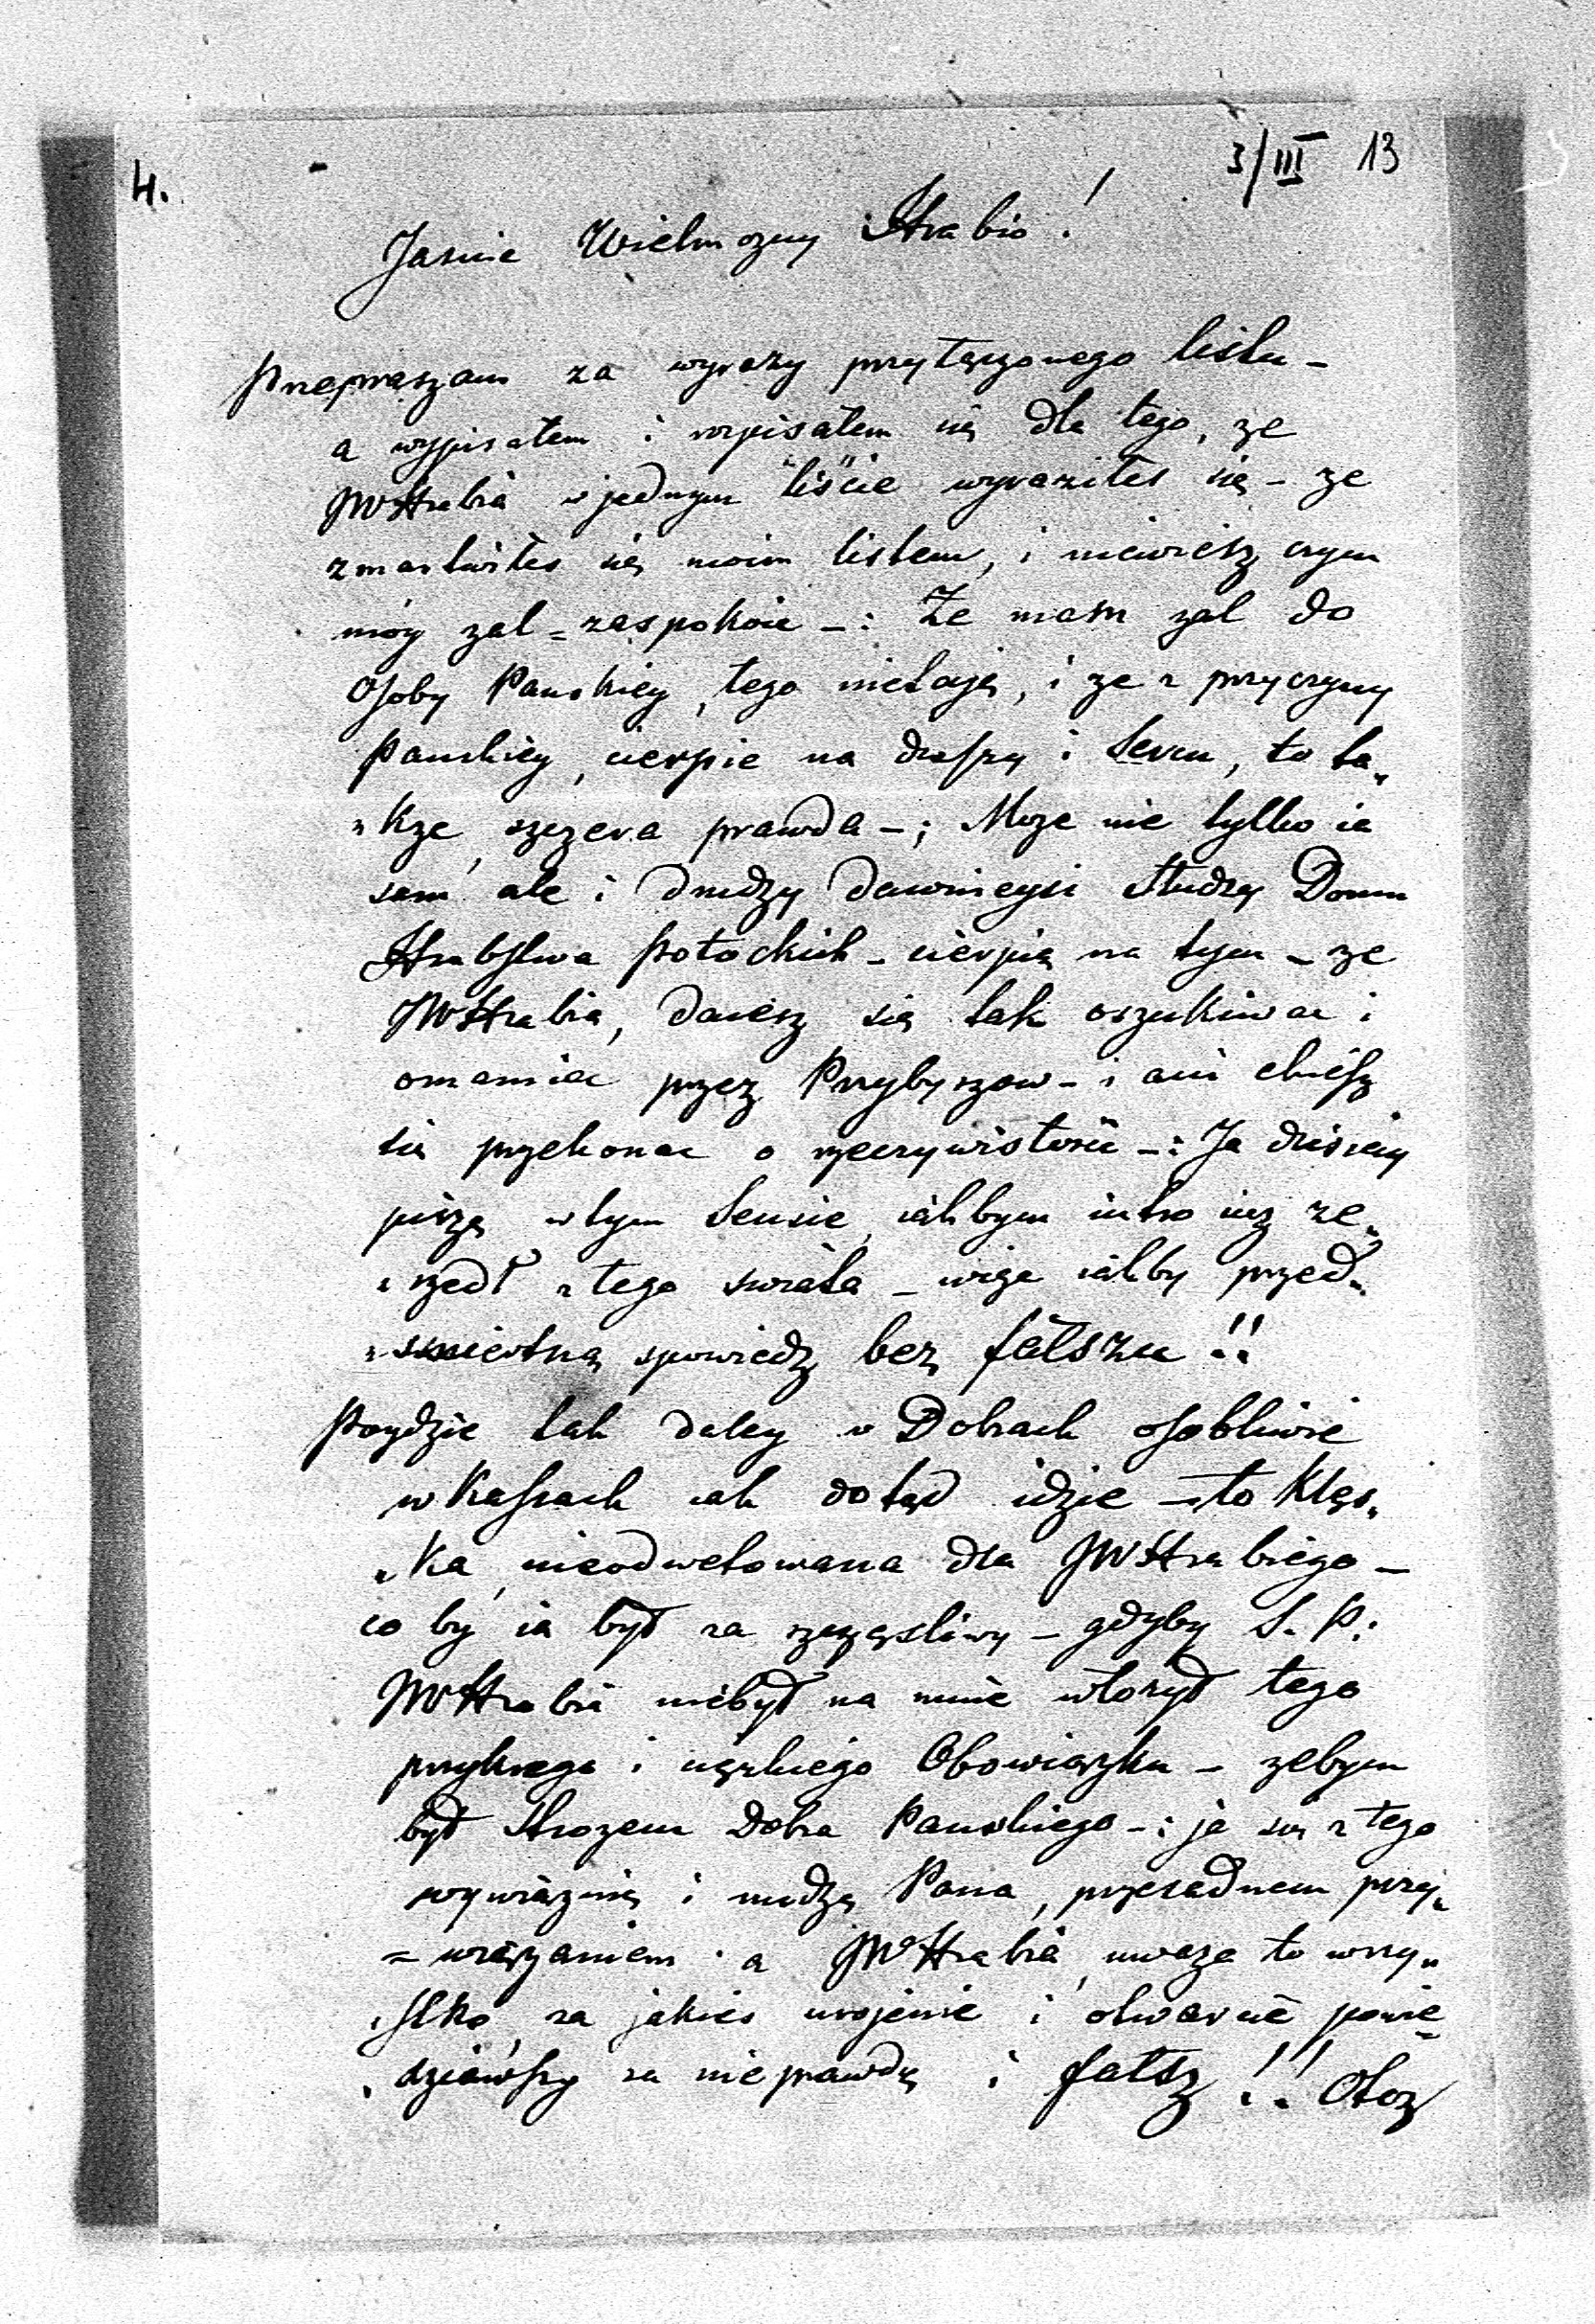 4.
3/III 13
Jasnie Wielmozny Hrabio!
Przepraszam za wyrazy przyłączonego listu –
a wypisałem i rozpisałem się dla tego, ze
JWHrabia w jednym liście wyraziłes się – ze
zmartwiłes się moim listem, i niewiesz czym
móy zal = zaspokoic –: Ze mam zal do
Osoby Panskiey, tego nietaję, i ze z przyczyny
Panskiey, cierpie na duszy i Sercu, to ta„
„kze szczera prawda –; Moze nie tylko ia
sam ale i drudzy dawnieysi Słudzy Domu
Hrabstwa Potockich – cierpią na tym – ze
JWHrabia, daiesz się tak oszukiwac i
omamiac przez Przybyszow – i ani chcesz
się przekonac o rzeczywistosci –: Ja dzisiay
piszę w tym Sensie, iakbym iutro iuz ze„
„szedł z tego swiata – więc iakby przed„
„smiertną spowiedz bez fałszu!!
Poydzie tak daley w Dobrach osobliwie
w Kassach iak dotąd idzie – to Klęs„
„Ka, nieodwetowana dla JWHrabiego –
co by ia był za szczęsliwy – gdyby S. P.:
JWHrabia niebył na mnie włozył tego
przykrego i cięzkiego Obowiązku – zebym
był Strozem Dobra Panskiego –: ja się z tego
wywiązuię i nudzę Pana, przesadnem przy„
= wiązaniem · a JWHrabia, uwaza to wszy„
„stko, za jakies urojenie i otwarcie powie„
„dziawszy za nieprawdę i fałsz!! Otoz